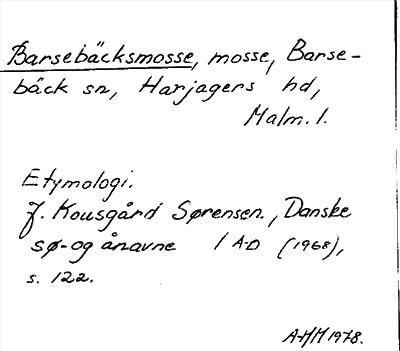 Barsebäcksmosse, mosse, Barse-
bäck sn, Harjagers hd,
Malm. l.
Etymologi.
J. Kousgård Sørensen, Danske
sø- og ånavne 1 A-D (1968),
s. 122.
AMM 1978.